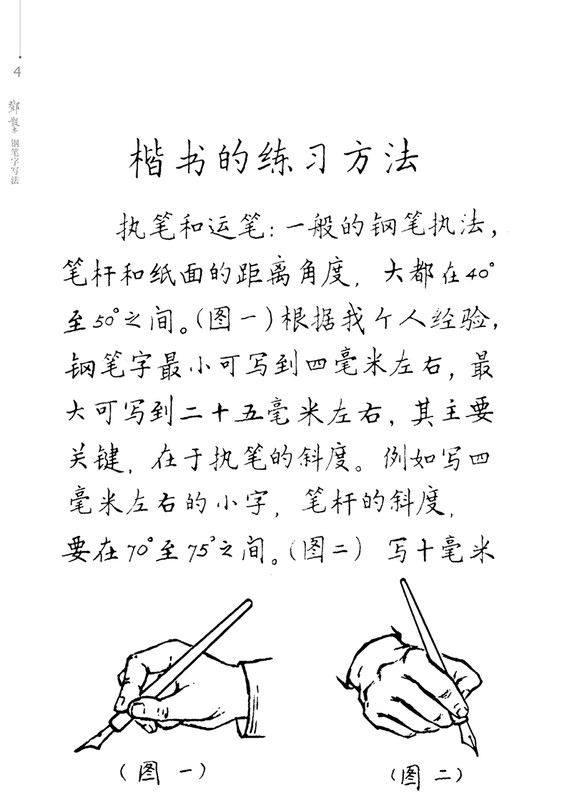 4
邓散木 钢笔字写法
楷书的练习方法
执笔和运笔:一般的钢笔执法,
笔杆和纸面的距离角度,大都在40°
至50°之间。(图一)根据我个人经验,
钢笔字最小可写到四毫米左右,最
大可写到二十五毫米左右,其主要
关键,在于执笔的斜度。例如写四
毫米左右的小字,笔杆的斜度,
要在70°至75°之间。(图二) 写十毫米
(图一)
(图二)